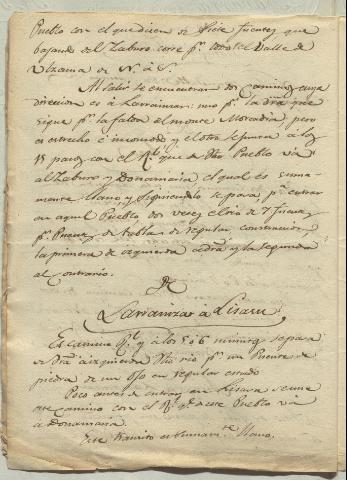 Pueblo con el que dicen de Siete fuentes que
bajando del Zaburo corre pr. todo el Valle de
Ulzama de N. a S.
Al salir se encuentran dos Caminos cuya
direccion es à Larrainzar: uno pr. la dra. que
sigue pr. la falda del monte
es estrecho è incomodo y el otro separa à los
15 pasos con el Rl. que de dho Pueblo và
al Zaburo y Donamaria el qual es suma-
mente llano y siguiendole se pasa pa. entrar
en aquel Pueblo dos veces el rio de 7 fuentes
pr. Puentes de tablas de regular construccion,
la primera de izquierda à dra. y la segunda
al contrario.
De
Larrainzar à Lizaso
Es Camino Rl. y à los 5 ó 6 minutos se pasa
de dra. à izquierda dho rio pr. un Puente de
piedra de un Ojo en regular estado
Poco antes de entrar en Lizaso se une
este camino con el Rl. qe. de este Pueblo và
à Donamaria.
Este transito es sumamte. llano.